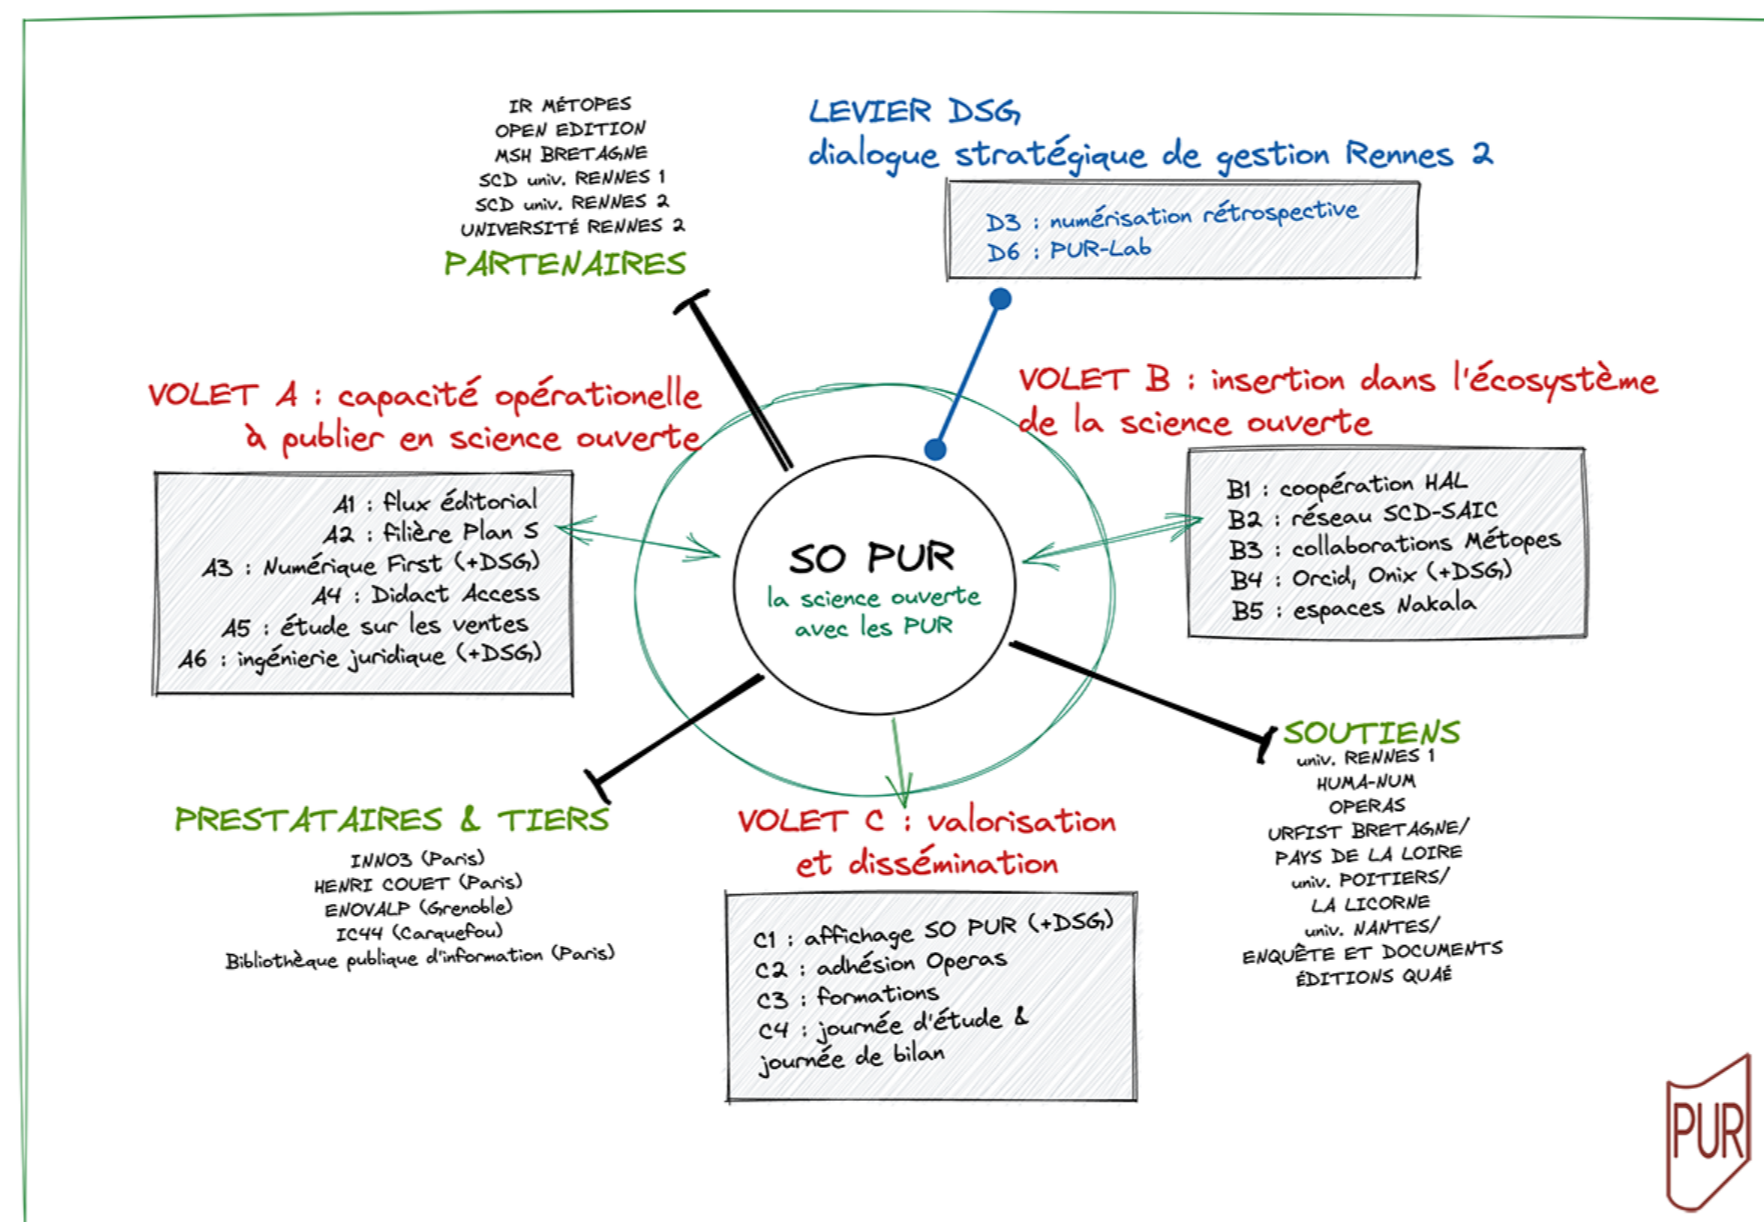 IR MÉTOPES
OPEN EDITION
MSH BRETAGNE
SCD univ. RENNES 1
SCD univ. RENNES 2
UNIVERSITÉ RENNES 2
PARTENAIRES
LEVIER DSG,
dialogue stratégique de gestion Rennes 2
D3 : numérisation rétrospective
D6 : PUR-Lab
VOLET A : capacité opérationelle
à publier en science ouverte
A1 : flux éditorial
A2 : filière Plan S
A3 : Numérique First (+DSG)
A4 : Didact Access
A5 : étude sur les ventes
A6 : ingénierie juridique (+DSG)
VOLET B : insertion dans l'écosystème
de la science ouverte
B1 : coopération HAL
B2 : réseau SCD-SAIC
B3 : collaborations Métopes
B4 : Orcid, Onix (+DSG)
B5 : espaces Nakala
SO PUR
la science ouverte
avec les PUR
PRESTATAIRES & TIERS
INNO3 (Paris)
HENRI COUET (Paris)
ENOVALP (Grenoble)
IC44 (Carquefou)
Bibliothèque publique d'information (Paris)
VOLET C : valorisation
et dissémination
C1 : affichage SO PUR (+DSG)
C2 : adhésion Operas
C3 : formations
C4 : journée d'étude &
journée de bilan
SOUTIENS
univ. RENNES 1
HUMA-NUM
OPERAS
URFIST BRETAGNE/
PAYS DE LA LOIRE
univ. POITIERS/
LA LICORNE
univ. NANTES/
ENQUÊTE ET DOCUMENTS
ÉDITIONS QUAÉ
PUR